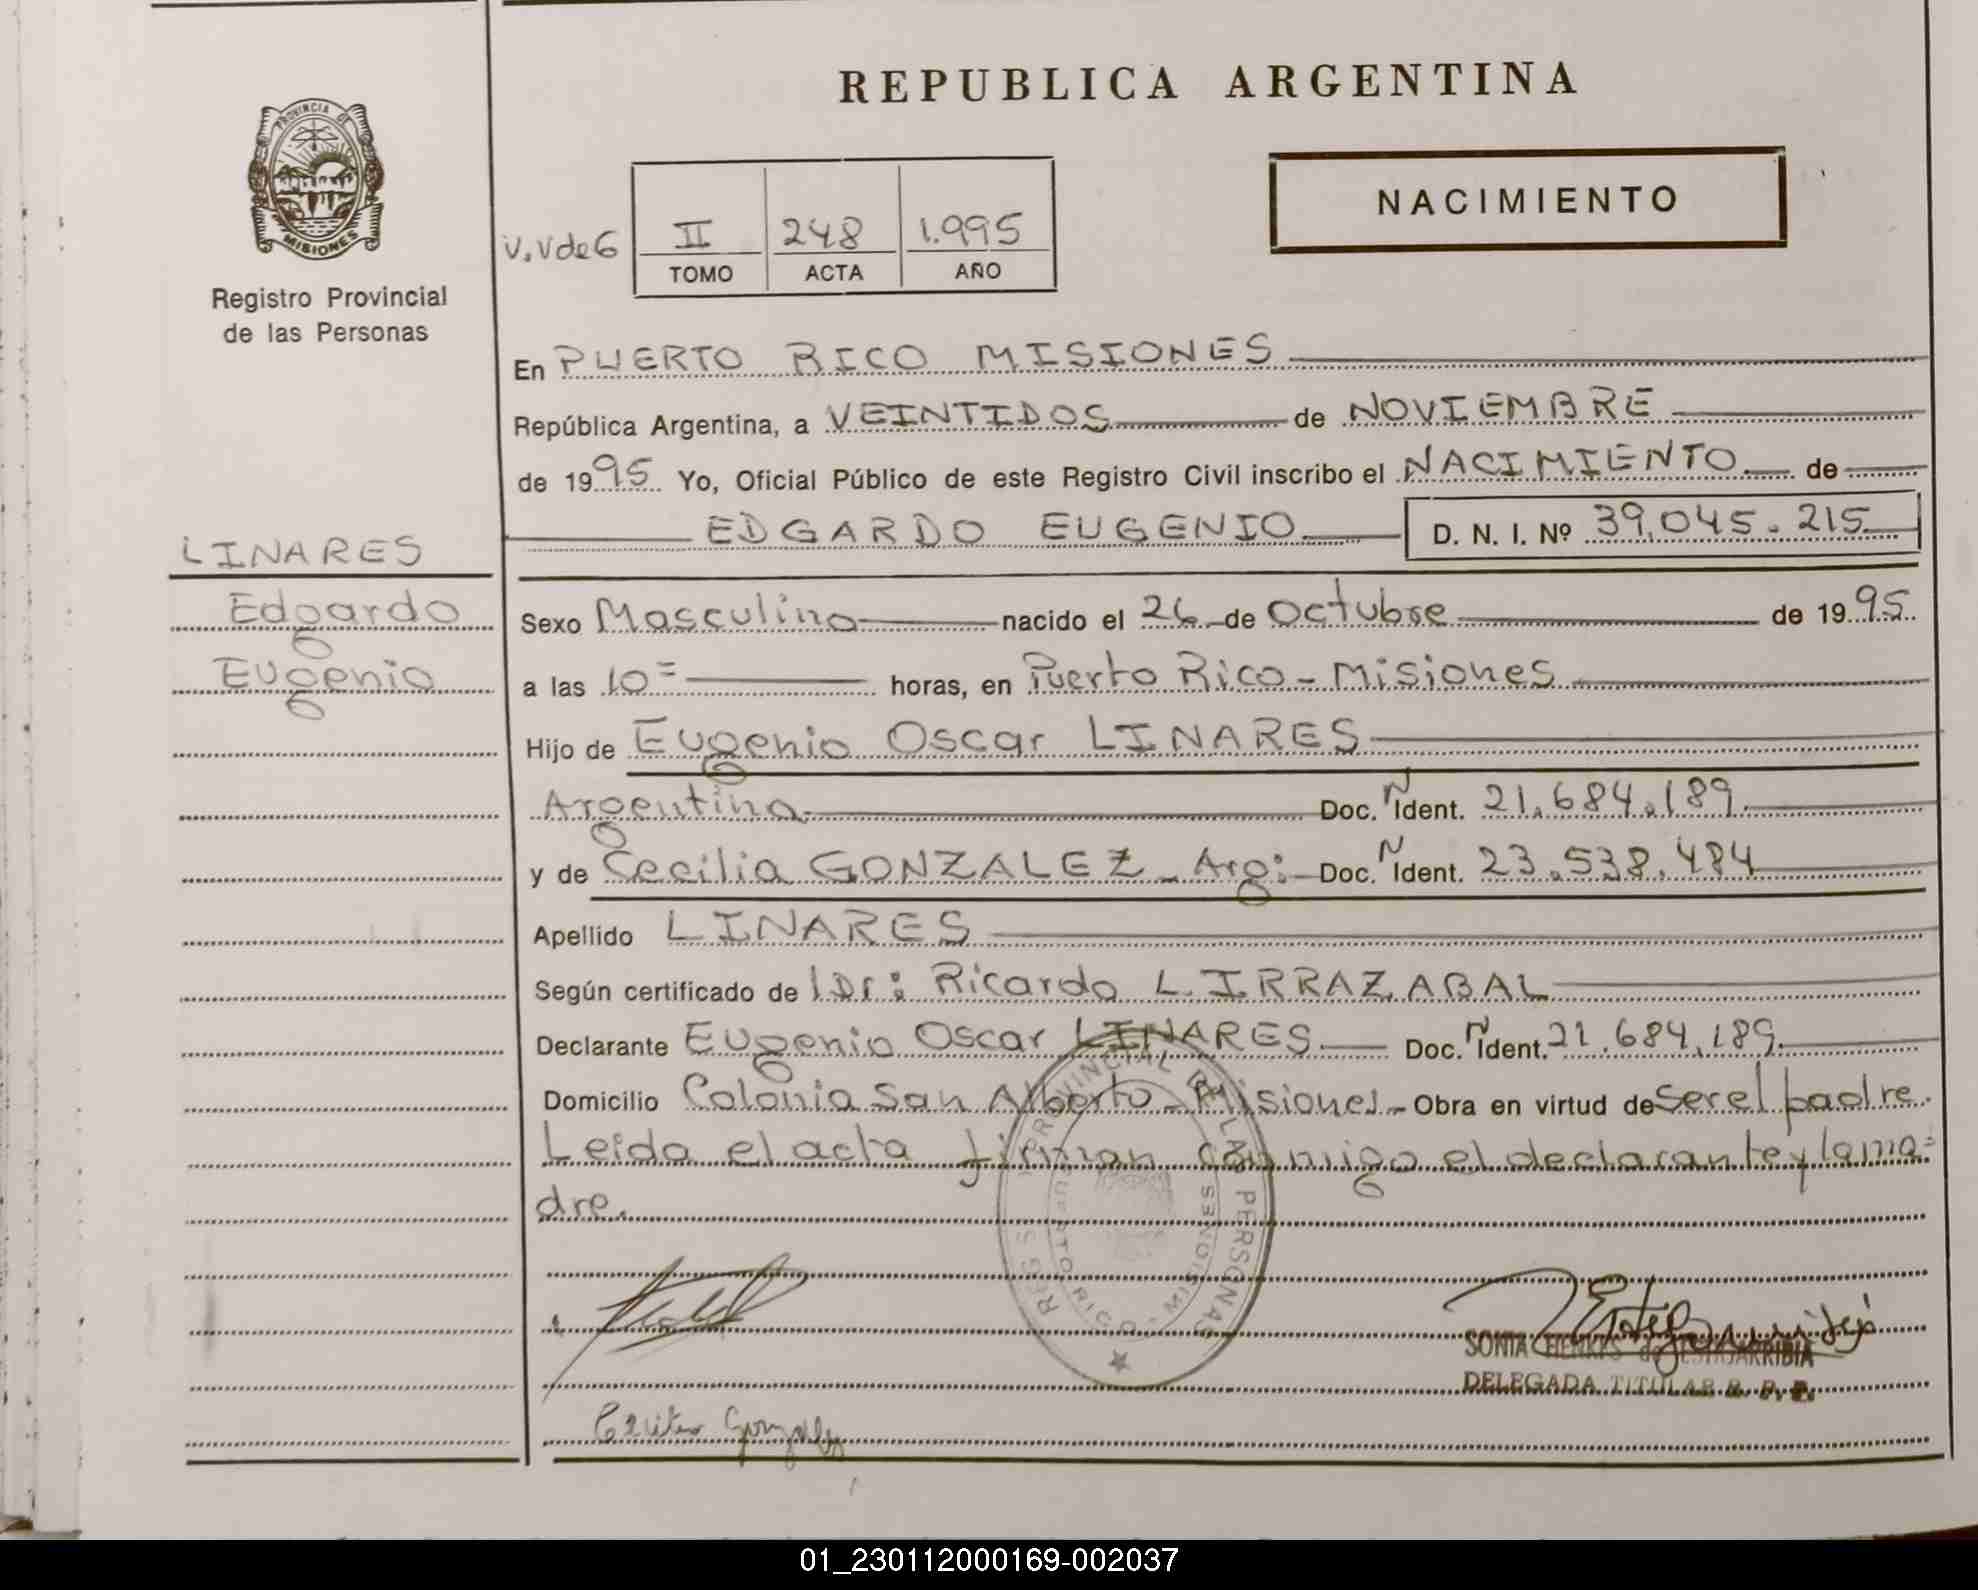 REPUBLICA ARGENTINA
PROVINCIA DE
MISIONES
Registro Provincial
de las Personas
NACIMIENTO
V.V de 6
II 248 1.995
TOMO ACTA AÑO
En PUERTO RICO MISIONES
República Argentina, a VEINTIDOS de NOVIEMBRE
de 1995 Yo, Oficial Público de este Registro Civil inscribo el NACIMIENTO de
EDGARDO EUGENIO D. N. I. Nº 39.045.215
LINARES
Edgardo
Eugenio
Sexo Masculino nacido el 26 de Octubre de 1995
a las 10= horas, en Puerto Rico - Misiones
Hijo de Eugenio Oscar LINARES
Argentina Doc. Ñ Ident. 21.684.189
y de Cecilia GONZALEZ - Arg: Doc. Ñ Ident. 23.538.484
Apellido LINARES
Según certificado de Dr: Ricardo L. IRRAZABAL
Declarante Eugenio Oscar LINARES Doc. Ñ Ident. 21.684.189
Domicilio Colonia San Alberto - Misiones - Obra en virtud de ser el padre.
Leida el acta firman conmigo el declarante y la ma=
dre.
PROVINCIAL DE LAS PERSONAS
PUERTO RICO - MISIONES
SONIA HENKES de ESTIGARRIBIA
DELEGADA TITULAR R. P. P.
Gonzalez
01_230112000169-002037